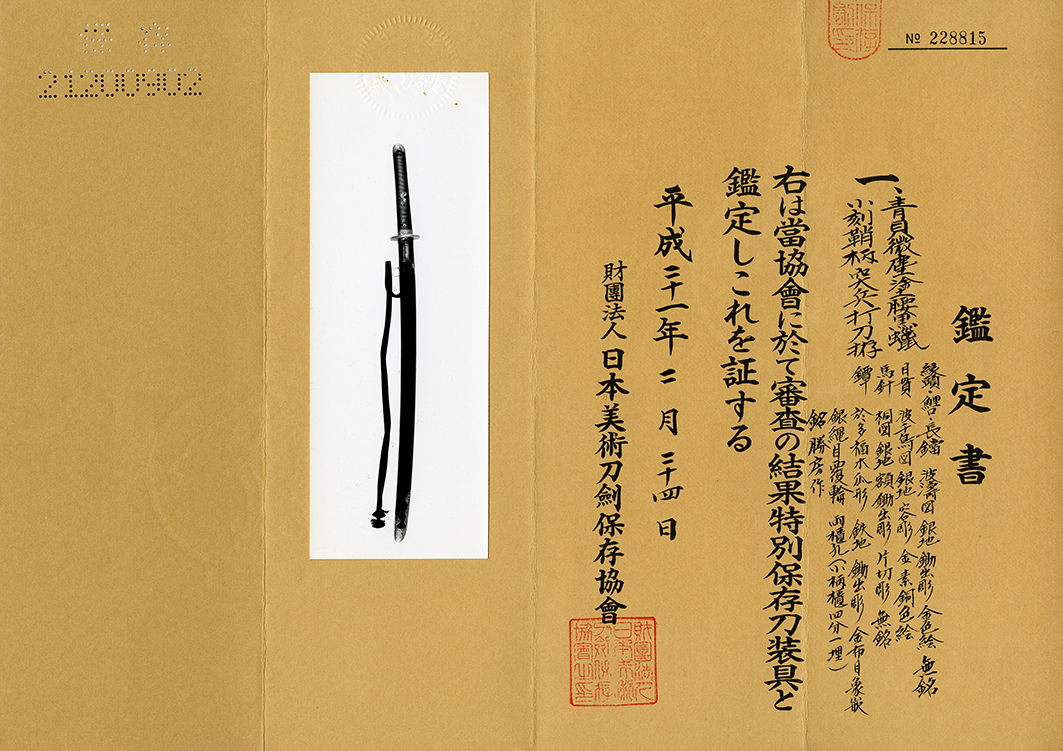 № 228815
鑑定書
一、青貝微塵塗腰蠟
小刻鞘柄突兵打刀拵
縁頭・鯉口・長鐺 波濤図 銀地 鋤出彫 金色絵 無銘
目貫 波千鳥図 銀地 容彫 金 素銅色絵
馬針 桐図 銀地 額鋤出彫 片切彫 無銘
鐔 於多福木瓜形 鉄地 鋤出彫 金布目象嵌
銀縄目覆輪 両櫃孔(小柄櫃四分一埋)
銘 勝房作
右は當協會に於て審査の結果特別保存刀装具と
鑑定しこれを証する
平成二十一年二月二十四日
財團法人 日本美術刀劍保存協會
21200902